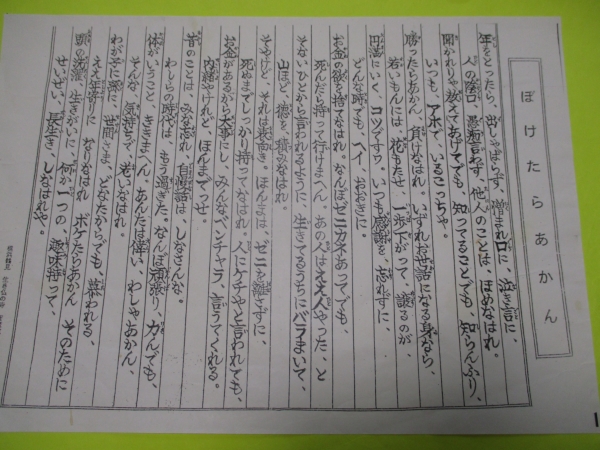 ぼけたらあかん
年をとったら、出しゃばらず、憎まれ口に、泣き言に、
人の陰口、愚痴言わず、他人のことは、ほめなはれ。
聞かれりゃ教えてあげてでも、知ってることでも、知らんふり、
いつも、アホで、いるこっちゃ。
勝ったらあかん、負けなはれ。いずれお世話になる身なら、
若いもんには、花もたせ、一歩さがって、譲るのが、
円満にいく、コツですワ。いつも感謝を、忘れずに、
どんな時でも、ヘイ、おおきに。
お金の欲を捨てなはれ。なんぼゼニカネあってでも、
死んだら持って行けまへん。あの人はええ人やった、と
そないひとから言われるように、生きてるうちにバラまいて、
山ほど、徳を、積みなはれ。
そやけど、それは表向き。ほんまは、ゼニを離さずに、
死ぬまでしっかり持ってなはれ。人にケチやと言われても、
お金があるから大事にし、みんなベンチャラ、言うてくれる。
内緒やけれど、ほんまでっせ。
昔のことは、みな忘れ、自慢話は、しなさんな。
わしらの時代は、もう過ぎた。なんぼ頑張り、力んでも、
体がいうこと、ききまへん。あんたは偉い、わしゃあかん、
そんな、気持ちで、老いなはれ
わが子に孫に、世間さま、どなたからでも、慕われる、
ええ年寄りに、なりなはれ。ボケたらあかん そのために
頭の洗濯、生きがいに、何か一つの、趣味持って、
せいぜい、長生き、しなはれや。